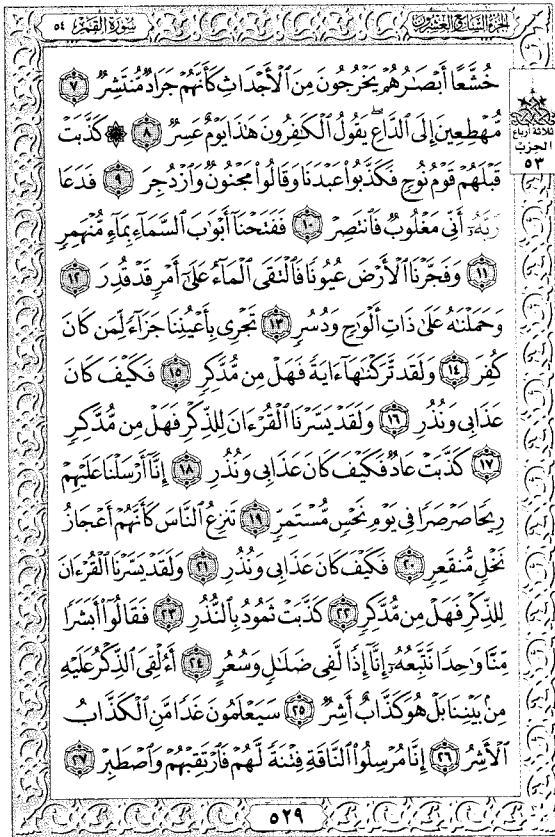 سورة القمر ٥٤
الجزء السابع والعشرون
خُشَّعًا أَبْصَٰرُهُمْ يَخْرُجُونَ مِنَ ٱلْأَجْدَاثِ كَأَنَّهُمْ جَرَادٌ مُّنتَشِرٌ ٧
مُّهْطِعِينَ إِلَى ٱلدَّاعِ ۖ يَقُولُ ٱلْكَٰفِرُونَ هَٰذَا يَوْمٌ عَسِرٌ ٨ ۞ كَذَّبَتْ
ثلاثة أرباع
الحزب
٥٣
قَبْلَهُمْ قَوْمُ نُوحٍ فَكَذَّبُوا۟ عَبْدَنَا وَقَالُوا۟ مَجْنُونٌ وَٱزْدُجِرَ ٩ فَدَعَا
رَبَّهُۥٓ أَنِّى مَغْلُوبٌ فَٱنتَصِرْ ١٠ فَفَتَحْنَآ أَبْوَٰبَ ٱلسَّمَآءِ بِمَآءٍ مُّنْهَمِرٍ
١١ وَفَجَّرْنَا ٱلْأَرْضَ عُيُونًا فَٱلْتَقَى ٱلْمَآءُ عَلَىٰٓ أَمْرٍ قَدْ قُدِرَ ١٢
وَحَمَلْنَٰهُ عَلَىٰ ذَاتِ أَلْوَٰحٍ وَدُسُرٍ ١٣ تَجْرِى بِأَعْيُنِنَا جَزَآءً لِّمَن كَانَ
كُفِرَ ١٤ وَلَقَد تَّرَكْنَٰهَآ ءَايَةً فَهَلْ مِن مُّدَّكِرٍ ١٥ فَكَيْفَ كَانَ
عَذَابِى وَنُذُرِ ١٦ وَلَقَدْ يَسَّرْنَا ٱلْقُرْءَانَ لِلذِّكْرِ فَهَلْ مِن مُّدَّكِرٍ
١٧ كَذَّبَتْ عَادٌ فَكَيْفَ كَانَ عَذَابِى وَنُذُرِ ١٨ إِنَّآ أَرْسَلْنَا عَلَيْهِمْ
رِيحًا صَرْصَرًا فِى يَوْمِ نَحْسٍ مُّسْتَمِرٍّ ١٩ تَنزِعُ ٱلنَّاسَ كَأَنَّهُمْ أَعْجَازُ
نَخْلٍ مُّنقَعِرٍ ٢٠ فَكَيْفَ كَانَ عَذَابِى وَنُذُرِ ٢١ وَلَقَدْ يَسَّرْنَا ٱلْقُرْءَانَ
لِلذِّكْرِ فَهَلْ مِن مُّدَّكِرٍ ٢٢ كَذَّبَتْ ثَمُودُ بِٱلنُّذُرِ ٢٣ فَقَالُوٓا۟ أَبَشَرًا
مِّنَّا وَٰحِدًا نَّتَّبِعُهُۥٓ إِنَّآ إِذًا لَّفِى ضَلَٰلٍ وَسُعُرٍ ٢٤ أَءُلْقِىَ ٱلذِّكْرُ عَلَيْهِ
مِنۢ بَيْنِنَا بَلْ هُوَ كَذَّابٌ أَشِرٌ ٢٥ سَيَعْلَمُونَ غَدًا مَّنِ ٱلْكَذَّابُ
ٱلْأَشِرُ ٢٦ إِنَّا مُرْسِلُوا۟ ٱلنَّاقَةِ فِتْنَةً لَّهُمْ فَٱرْتَقِبْهُمْ وَٱصْطَبِرْ ٢٧
٥٢٩